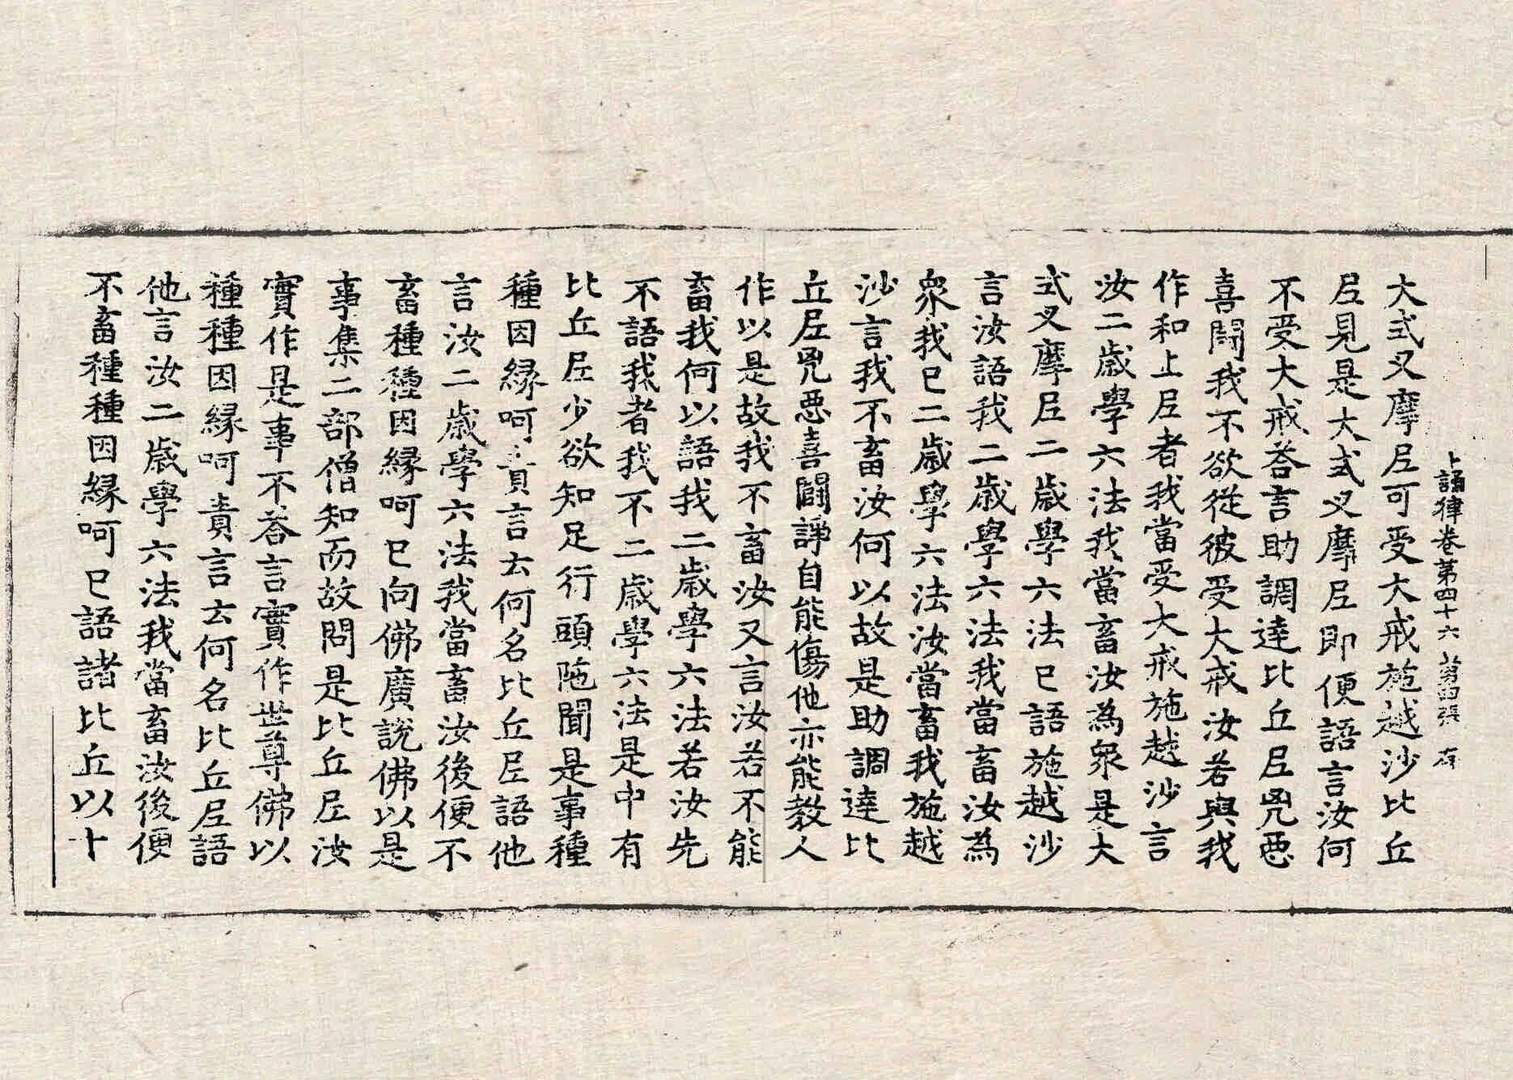 十誦律卷第四十六 第四張 存
大式叉摩尼可受大戒施越沙比丘
尼見是大式叉摩尼即便語言汝何
不受大戒荅言助調達比丘尼㐫惡
喜鬪我不欲從彼受大戒汝若與我
作和上尼者我當受大戒施越沙言
汝二歲學六法我當畜汝為衆是大
式叉摩尼二歲學六法已語施越沙
言汝語我二歲學六法我當畜汝為
衆我已二歲學六法汝當畜我施越
沙言我不畜汝何以故是助調達比
丘尼㐫惡喜鬪諍自能傷他亦能教人
作以是故我不畜汝又言汝若不能
畜我何以語我二歲學六法若汝先
不語我者我不二歲學六法是中有
比丘尼少欲知足行頭陁聞是事種
種因縁呵責言云何名比丘尼語他
言汝二歲學六法我當畜汝後便不
畜種種因縁呵已向佛廣說佛以是
事集二部僧知而故問是比丘尼汝
實作是事不荅言實作世尊佛以
種種因縁呵責言云何名比丘尼語
他言汝二歲學六法我當畜汝後便
不畜種種因縁呵已語諸比丘以十